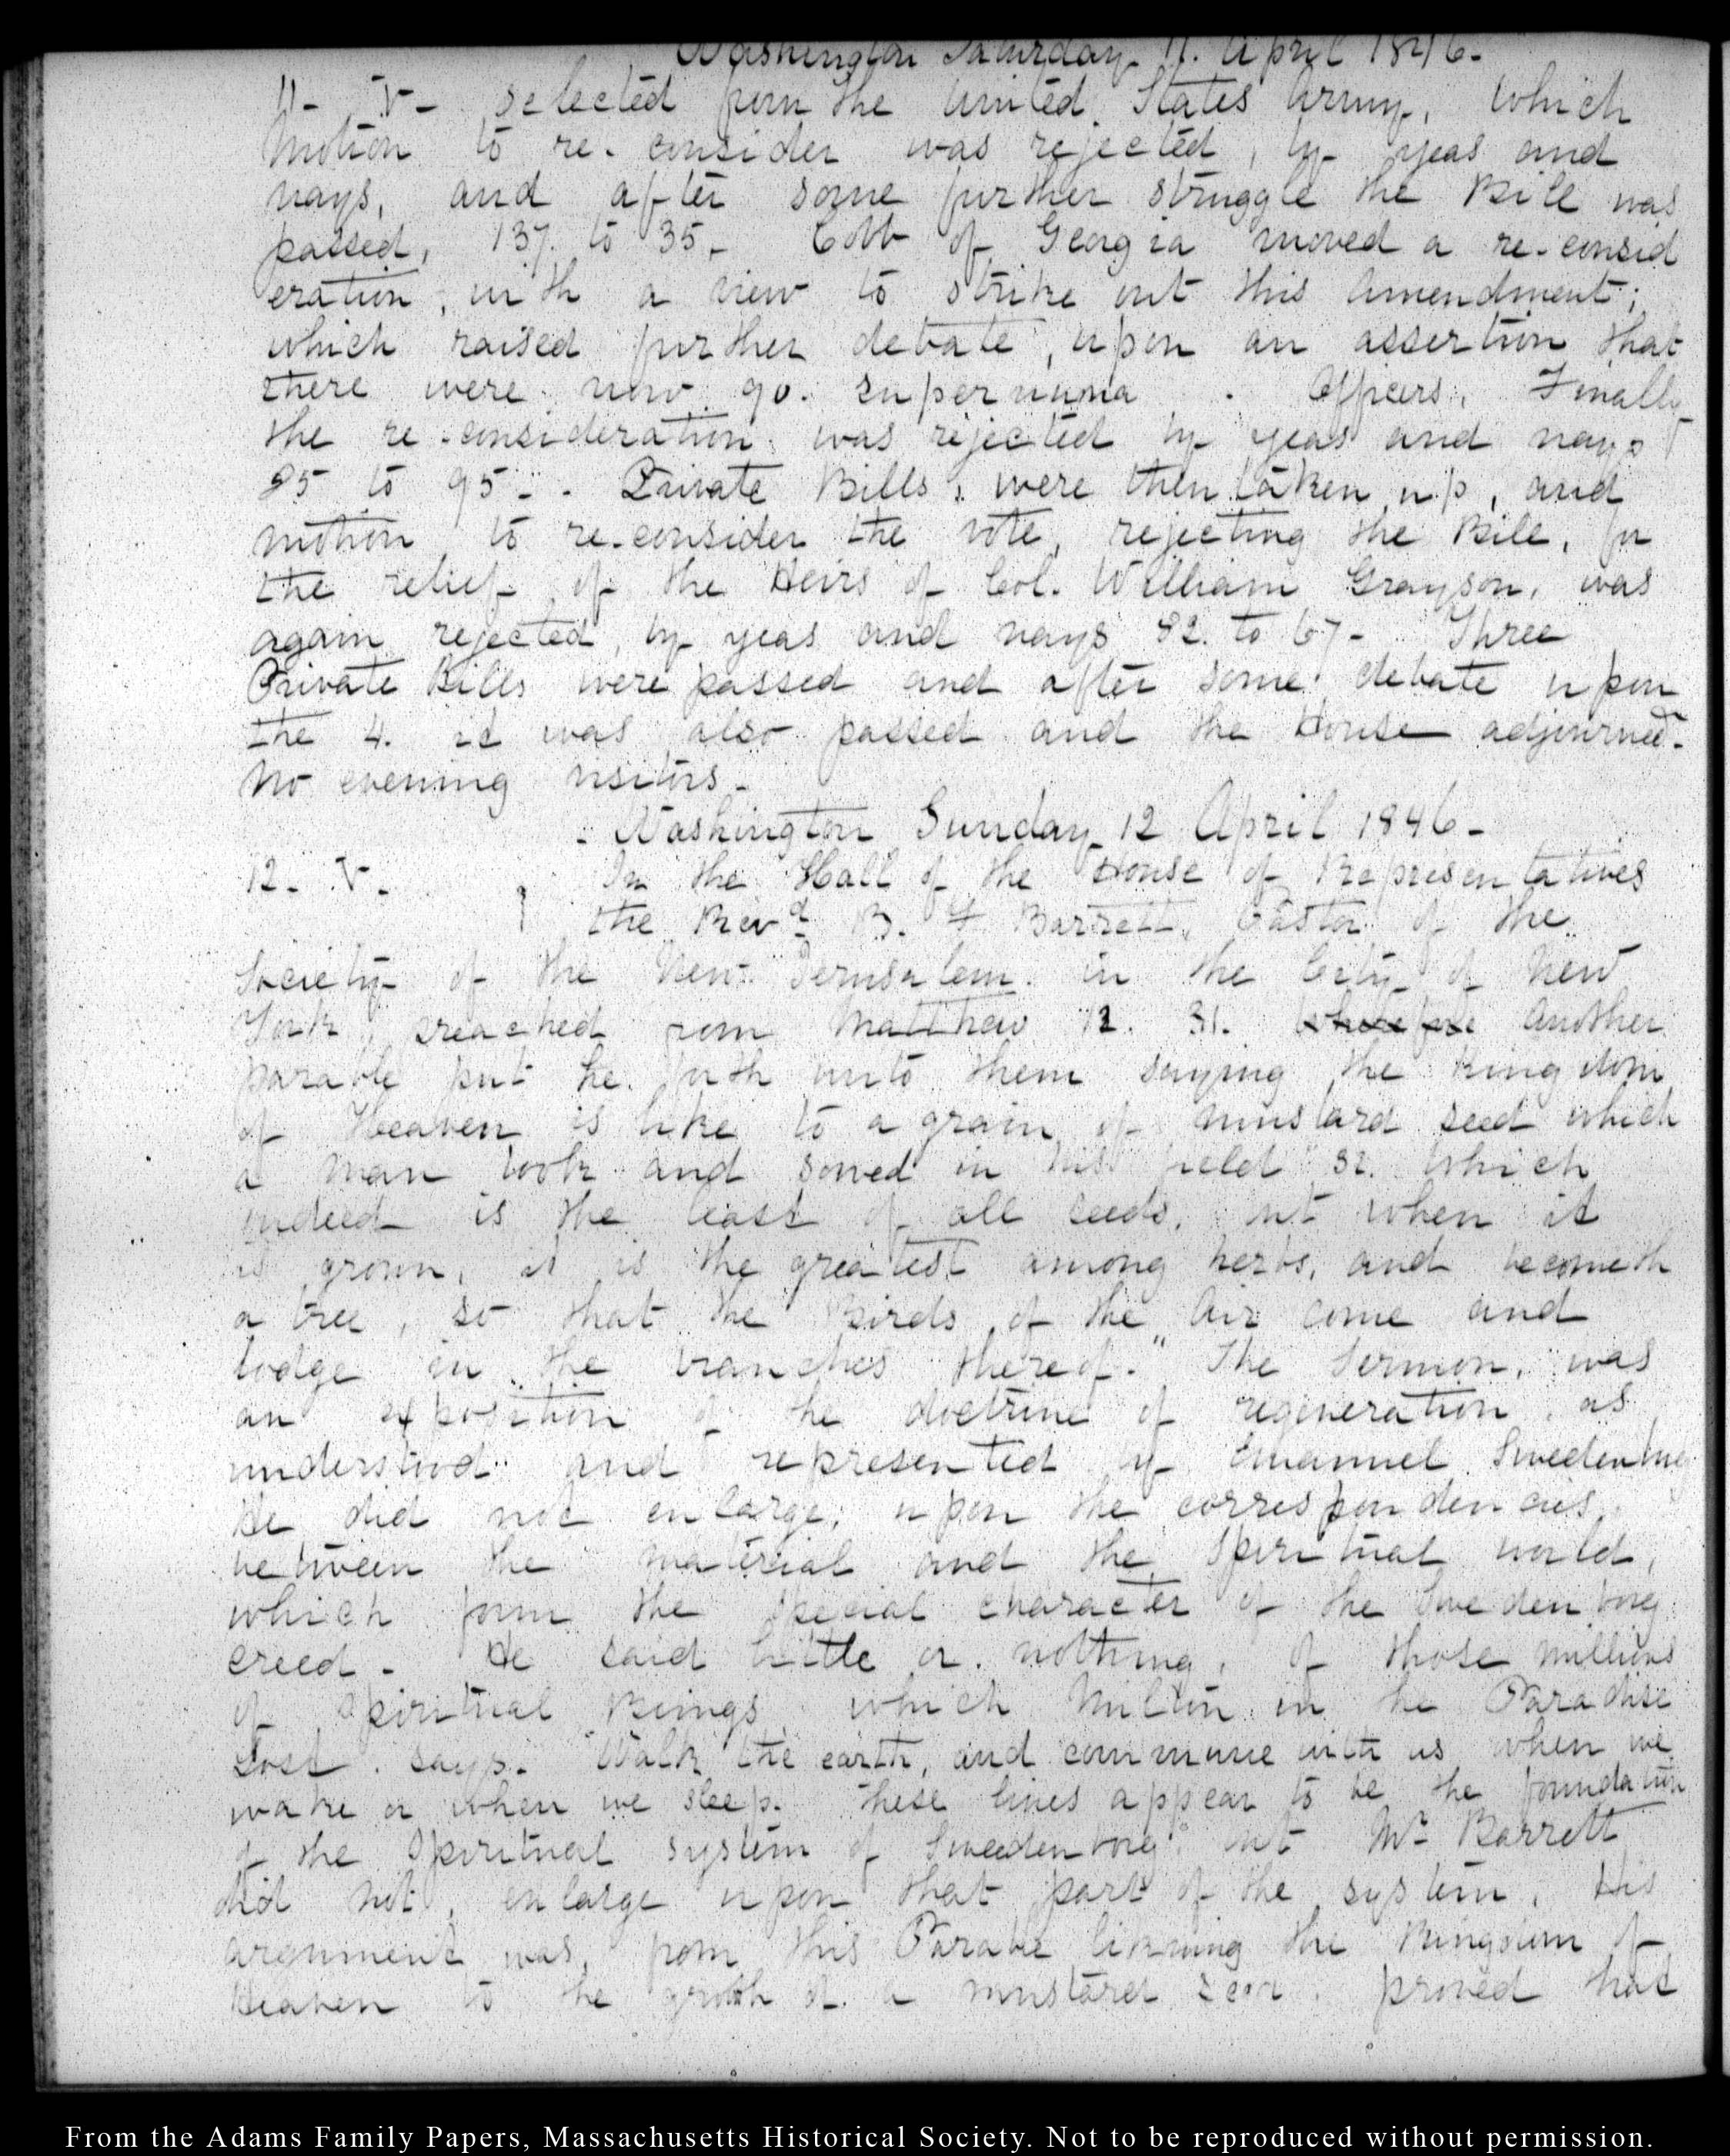 Washington Saturday 11. April 1846-
11- V- selected from the United States Army, which
motion to re-consider was rejected, by yeas and
nays, and after some further struggle the Bill was
passed, 137. to 35- Cobb of Georgia moved a re-consid
eration, with a view to strike out this amendment;
which raised further debate, upon an assertion that
there were now 90. supernuma Officers. Finally
the re-consideration was rejected by yeas and nays
to 95-- Private Bills, were then taken up, and
motion to re-consider the vote, rejecting the Bill, for
the relief of the Heirs of Col. William Grayson, was
again rejected, by yeas and nays 92. to 67- Three
Private Bills were passed and after some debate upon
the 4. it was also passed and the House adjourned-
No evening visitors-
- Washington Sunday 12 April 1846-
12- V- In the Hall of the House of Representatives
the Revd B. F Barrett, Pastor of the
Society of the New Jerusalem in the City of New
York, preached from Matthew 31. Another
parable put he forth unto them saying the Kingdom
of Heaven is like to a grain of mustard seed which
a man took and sowed in his field 32. Which
indeed is the least of all seeds, but when it
is grown, it is the greatest among herbs, and becometh
a tree, so that the Birds of the Air come and
lodge in the branches thereof." The Sermon, was
an exposition of the doctrine of regeneration, as
understood and represented by Emanuel Swedenborg
He did not enlarge, upon the correspondencies
between the material and the Spiritual world,
which form the special character of the Swedenborg
creed- He said little or nothing, of those millions
of Spiritual Beings which Milton in the Paradise
Lost. says. "Walk the earth, and commune with us when we
wake or when we sleep. These lines appear to be the foundation
of the Spiritual system of Swedenborg; but Mr Barrett
did not, enlarge upon that part of the system. His
argument was, from this Parable likening the Kingdom of
Heaven to the growth of a mustard seed. proved that
From the Adams Family Papers, Massachusetts Historical Society. Not to be reproduced without permission.